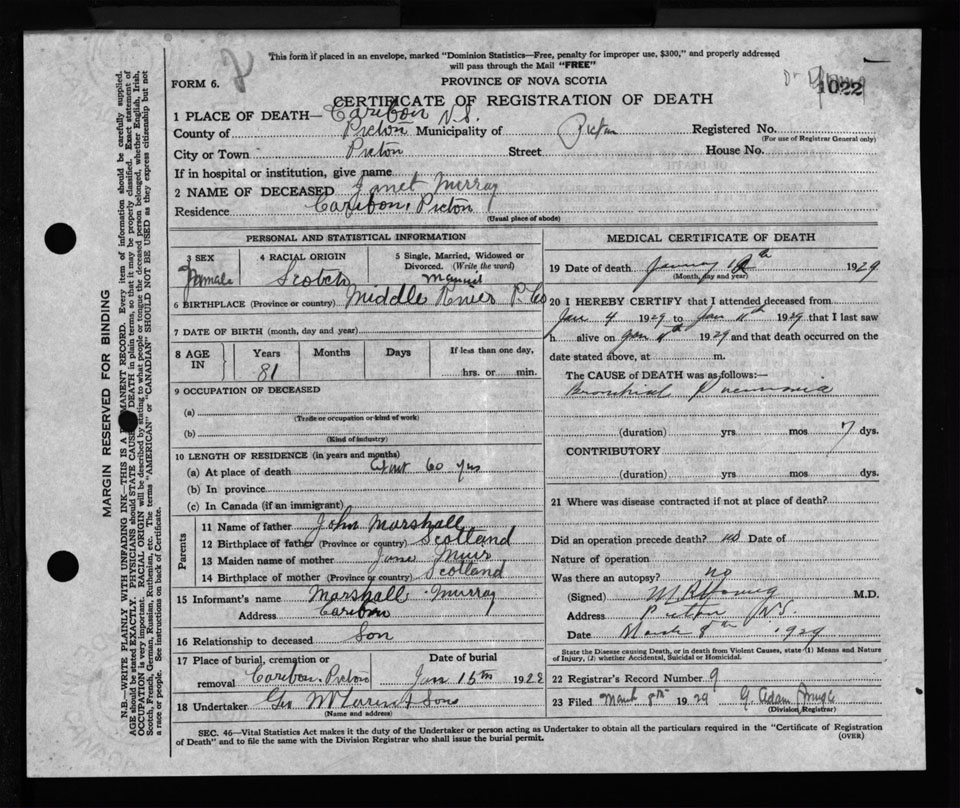 This form if placed in an envelope, marked "Dominion Statistics—Free, penalty for improper use, $300," and properly addressed
will pass through the Mail "FREE"
FORM 6.
PROVINCE OF NOVA SCOTIA
1022
CERTIFICATE OF REGISTRATION OF DEATH
1 PLACE OF DEATH— Caribou N.S.
County of Pictou Municipality of Pictou Registered No.
(For use of Registrar General only)
City or Town Pictou Street House No.
If in hospital or institution, give name
2 NAME OF DECEASED Janet Murray
Residence Caribou, Pictou
(Usual place of abode)
PERSONAL AND STATISTICAL INFORMATION
3 SEX Female
4 RACIAL ORIGIN Scotch
5 Single, Married, Widowed or Divorced. (Write the word) Married
6 BIRTHPLACE (Province or country) Middle River P. Co
7 DATE OF BIRTH (month, day and year)
8 AGE IN Years Months Days If less than one day,
81 hrs. or min.
9 OCCUPATION OF DECEASED
(a)
(Trade or occupation or kind of work)
(b)
(Kind of industry)
10 LENGTH OF RESIDENCE (in years and months)
(a) At place of death 60 yrs
(b) In province
(c) In Canada (if an immigrant)
Parents
11 Name of father John Marshall
12 Birthplace of father (Province or country) Scotland
13 Maiden name of mother Jane Muir
14 Birthplace of mother (Province or country) Scotland
15 Informant's name Marshall Murray
Address Caribou
16 Relationship to deceased Son
17 Place of burial, cremation or removal Caribou, Pictou
Date of burial Jan 15th 192
18 Undertaker Geo & Sons
(Name and address)
MEDICAL CERTIFICATE OF DEATH
19 Date of death January 1929
(Month, day and year)
20 I HEREBY CERTIFY that I attended deceased from
Jan 4 1929 to Jan 1929 that I last saw
h alive on Jan 1929 and that death occurred on the
date stated above, at m.
The CAUSE of DEATH was as follows:—
Bronchial Pneumonia
(duration) yrs mos 7 dys.
CONTRIBUTORY
(duration) yrs mos dys.
21 Where was disease contracted if not at place of death?
Did an operation precede death? no Date of
Nature of operation
Was there an autopsy? no
(Signed) M.D.
Address Pictou N.S.
Date March 8th 1929
State the Disease causing Death, or in death from Violent Causes, state (1) Means and Nature
of Injury, (2) whether Accidental, Suicidal or Homicidal.
22 Registrar's Record Number 9
23 Filed March 8th 1929 G. Adam
(Division Registrar)
SEC. 46—Vital Statistics Act makes it the duty of the Undertaker or person acting as Undertaker to obtain all the particulars required in the "Certificate of Registration
of Death" and to file the same with the Division Registrar who shall issue the burial permit.
(OVER)
MARGIN RESERVED FOR BINDING
N.B.—WRITE PLAINLY WITH UNFADING INK—THIS IS A PERMANENT RECORD. Every item of information should be carefully supplied.
AGE should be stated EXACTLY. PHYSICIANS should STATE CAUSE DEATH in plain terms, so that it may be properly classified. Exact statement of
OCCUPATION is very important. RACIAL ORIGIN will be described by stating to what people or tongue the deceased person belonged, whether English, Irish,
Scotch, French, German, Russian, Ruthenian, etc. The terms "AMERICAN" or "CANADIAN" SHOULD NOT BE USED as they express citizenship but not
a race or people. See instructions on back of Certificate.